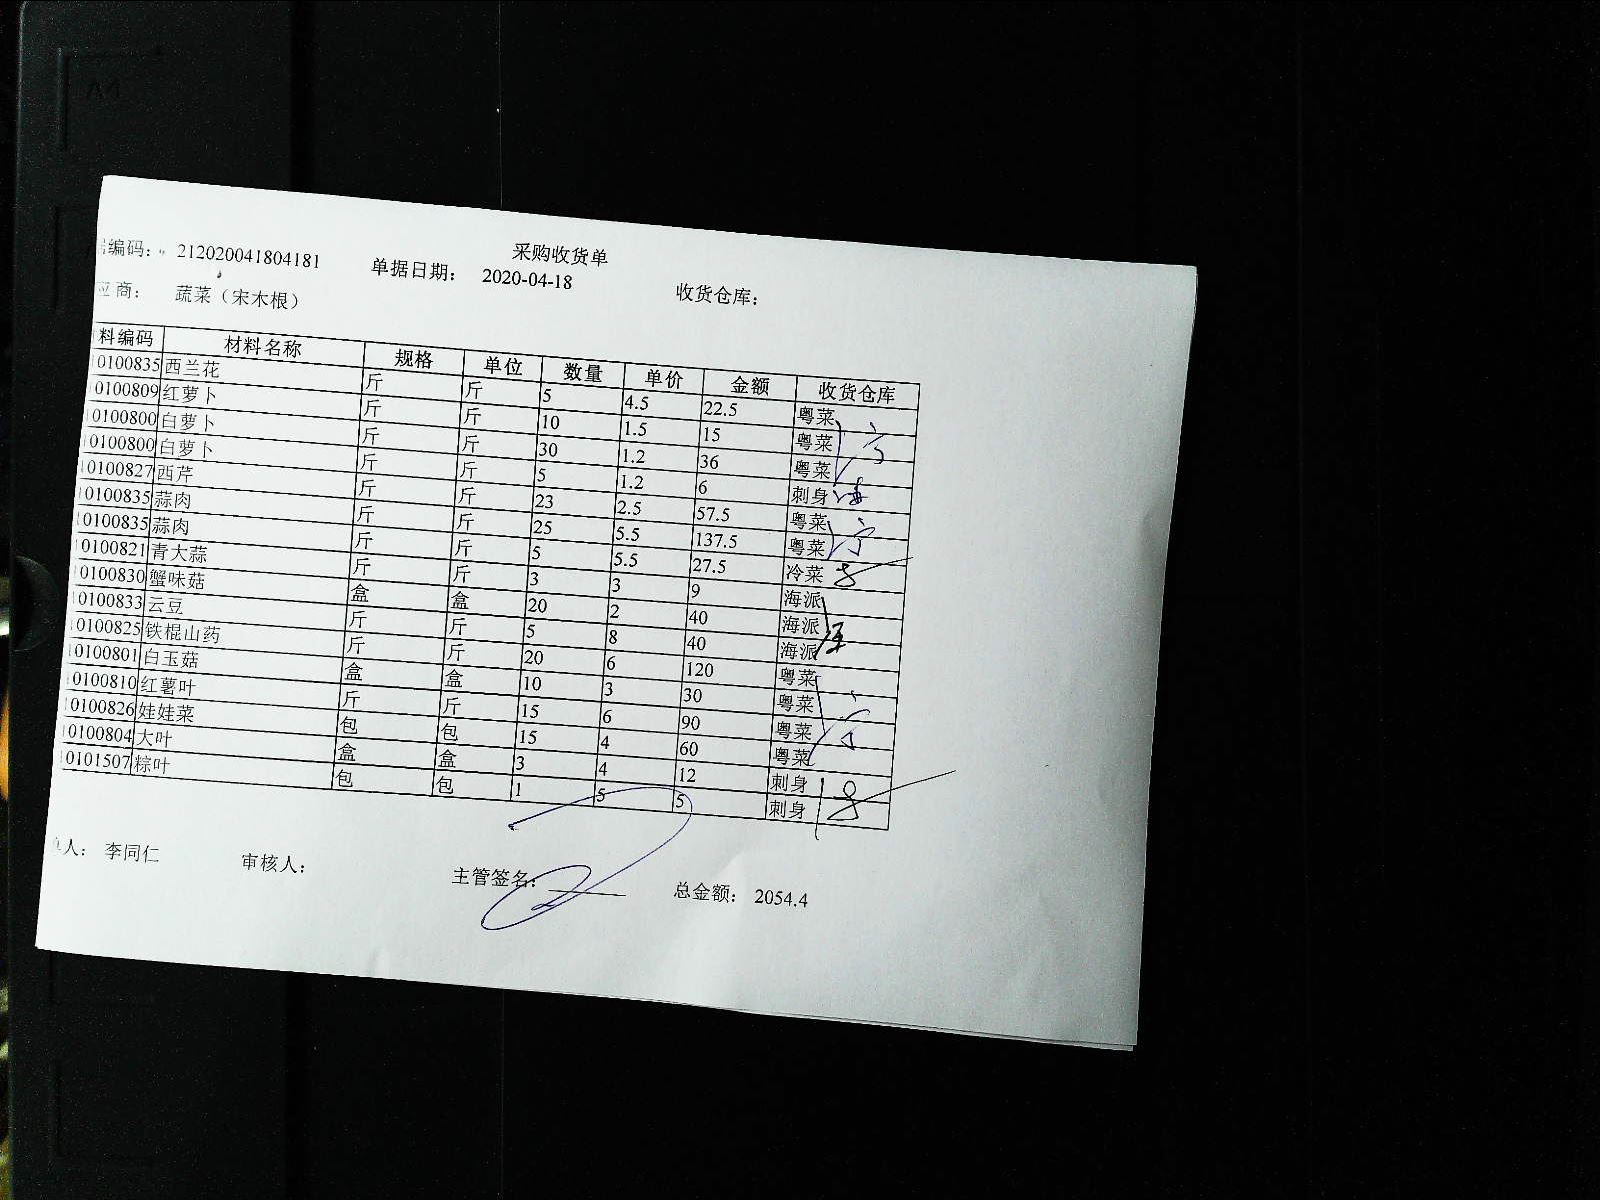 采购收货单
编码: 212020041804181 单据日期: 2020-04-18 收货仓库:
应商: 蔬菜（宋木根）
料编码 材料名称 规格 单位 数量 单价 金额 收货仓库
0100835 西兰花 斤 斤 5 4.5 22.5 粤菜
0100809 红萝卜 斤 斤 10 1.5 15 粤菜
0100800 白萝卜 斤 斤 30 1.2 36 粤菜
0100800 白萝卜 斤 斤 5 1.2 6 刺身
0100827 西芹 斤 斤 23 2.5 57.5 粤菜
0100835 蒜肉 斤 斤 25 5.5 137.5 粤菜
0100835 蒜肉 斤 斤 5 5.5 27.5 冷菜
0100821 青大蒜 斤 斤 3 3 9 海派
0100830 蟹味菇 盒 盒 20 2 40 海派
0100833 云豆 斤 斤 5 8 40 海派
0100825 铁棍山药 斤 斤 20 6 120 粤菜
0100801 白玉菇 盒 盒 10 3 30 粤菜
0100810 红薯叶 斤 斤 15 6 90 粤菜
0100826 娃娃菜 包 包 15 4 60 粤菜
0100804 大叶 盒 盒 3 4 12 刺身
0101507 粽叶 包 包 1 5 5 刺身
人: 李同仁 审核人: 主管签名: 总金额: 2054.4